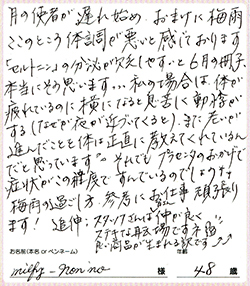 月の使者が遅れ始め、おまけに梅雨
ここのところ体調が悪いと感じております
「セルトーニン」の分泌が欠乏しやすいと6月の冊子
本当にそう思います…私の場合は体が
疲れているのに横になると息苦しく動悸が
する(なぜか夜が近づくると)、また老いが
進んだことを体は正直に教えてくれているん
だと思っています。それでもプラセンタのおかげで
症状がこの程度ですんでいるのでしょうね
梅雨の過ごし方、参考にお仕事頑張り
ます! 追伸:スタッフさんは仲が良く
ステキな職場ですネ
良い商品が生まれる訳です
お名前(本名orペンネーム)
年齢
milfy-non no 様 48歳